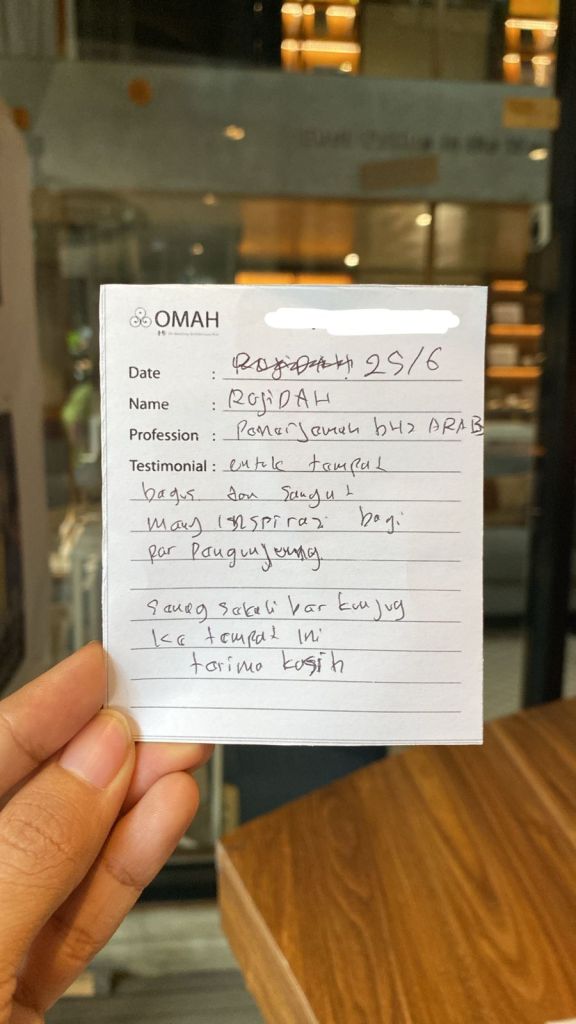 OMAH
Date : 25/6
Name : ROJIDAH
Profession : Panarjamah bHS ARAB
Testimonial : entuk tampat
bagus dan Sangat
mang INSPirasi bagi
par Pangunjeung
Saneg sakali bar kunjug
ka tampat INi
tarima kasih